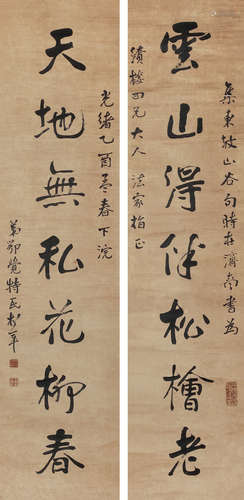 雲山得伴松檜老
集東坡山谷句時在濟南書為
績棪四兄大人法家楷正
天地無私花柳春
光緒乙酉孟春下浣
弟鄂覺特氏松年